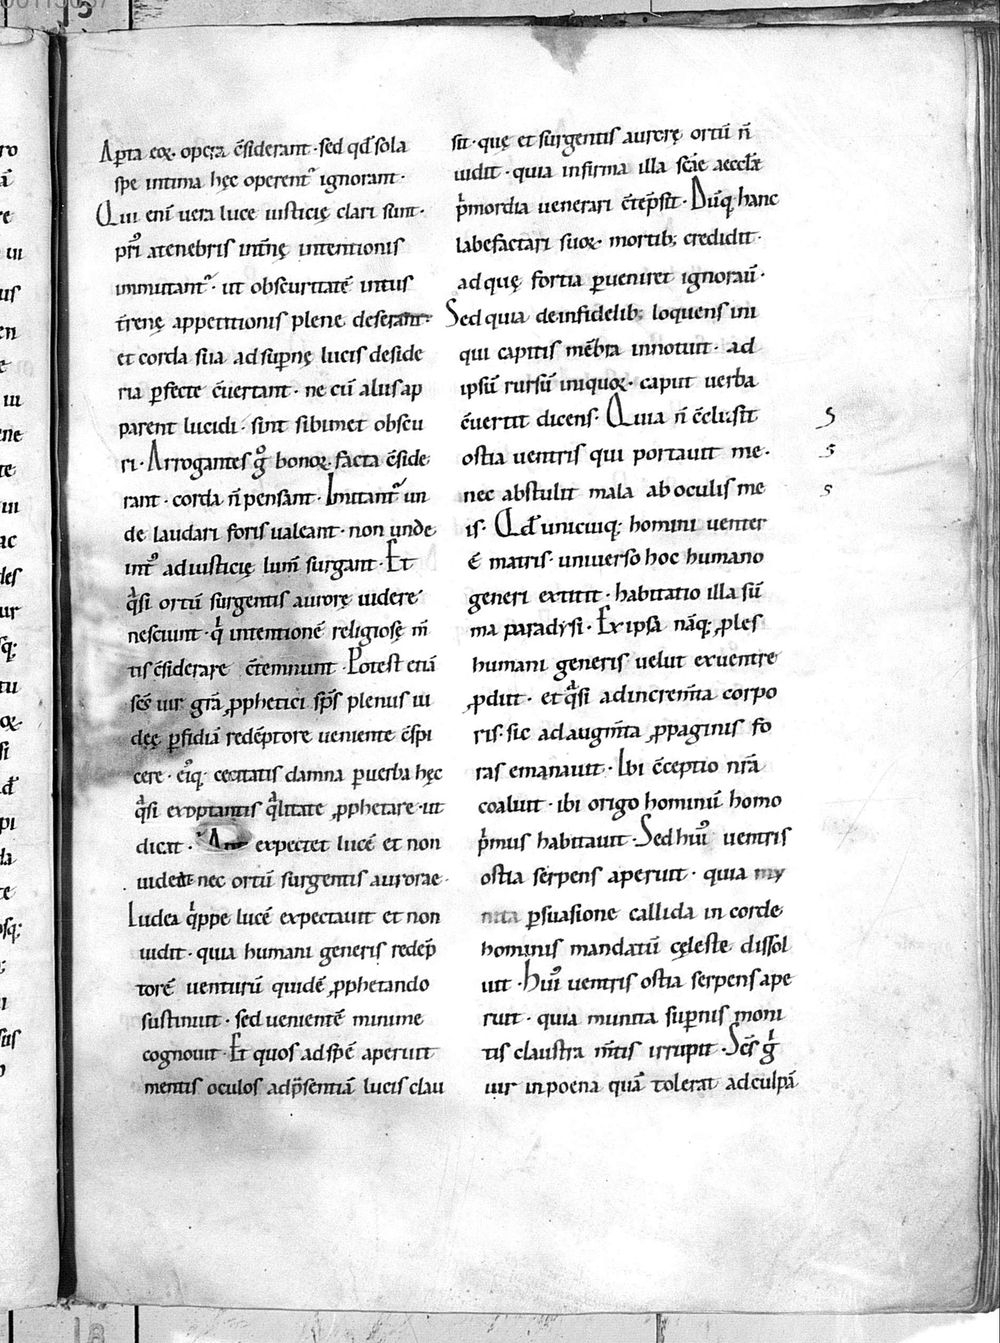 Apta eoꝝ opera c̄siderant · sed qd̄ sola
spe intima hęc operent᷑ ignorant ·
Qui eni uera luce iusticię clari sunt ·
pri᷒ a tenebris int̄nę intentionis
immutant᷑ · ut obscuritatē intus
t̄renę appetitionis plene deserant ·
et corda sua ad sup̄nę lucis deside
ria ꝑfecte c̄uertant · ne cū aliis ap
parent lucidi · sint sibimet obscu
ri · Arrogantes gͦ bonoꝝ facta c̄side
rant · corda n̄ pensant · Imitant᷑ un
de laudari foris ualeant · non unde
int᷒ ad iusticię lum̄ surgant · Et
qͣsi ortū surgentis aurorę uidere
nesciunt · qͥ intentionē religiosę m̄
tis c̄siderare c̄temnunt · Potest etiā
sc̄s uir gr̄a ꝓphetici sp̄s plenus iu
dęę ꝑfidiā redēptore ueniente c̄spi
cere · ei᷒qꝫ cecitatis damna ꝑ uerba hęc
qͣsi exoptantis qͣlitate ꝓphetare · ut
dicit · expectet lucē et non
uideat nec ortū surgentis aurorae ·
Iudea qͥppe lucē expectauit et non
uidit · quia humani generis redēp
torē uenturū quidē ꝓphetando
sustinuit · sed uenientē minime
cognouit · Et quos ad spē aperuit
mentis oculos ad p̄sentiā lucis clau
sit · quę et surgentis aurorę ortū n̄
uidit · quia infirma illa sc̄ae aeccl̄ę
pͥmordia uenerari c̄tēpsit · Dūqꝫ hanc
labefactari suoꝝ mortibꝫ credidit ·
ad quę fortia ꝑueniret ignorauͥ ·
Sed quia de infidelibꝫ loquens ini
qui capitis mēbra innotuit · ad
ipsū rursū iniquoꝝ caput uerba
c̄uertit dicens · Quia n̄ c̄clusit
ostia uentris qui portauit me ·
nec abstulit mala ab oculis me
is · Qd̄ unicuiqꝫ homini uenter
ē matris · universo hoc humano
generi extitit · habitatio illa sū
ma paradysi · Ex ipsa nāqꝫ ꝓles
humani generis velut ex uentre
ꝓdiit · et qͣsi ad increm̄ta corpo
ris · sic ad augm̄ta ꝓpaginis fo
ras emanauit · Ibi c̄ceptio nr̄a
coaluit · ibi origo hominū homo
pͥmus habitauit · Sed hui᷒ uentris
ostia serpens aperuit · quia my
nita ꝑsuasione callida in corde
hominis mandatū cęleste dissol
uit · Hui᷒ uentris ostia serpens ape
ruit · quia munita sup̄nis moni
tis claustra m̄tis irrupit · Sc̄s gͥ
uir in poena quā tolerat ad culpā